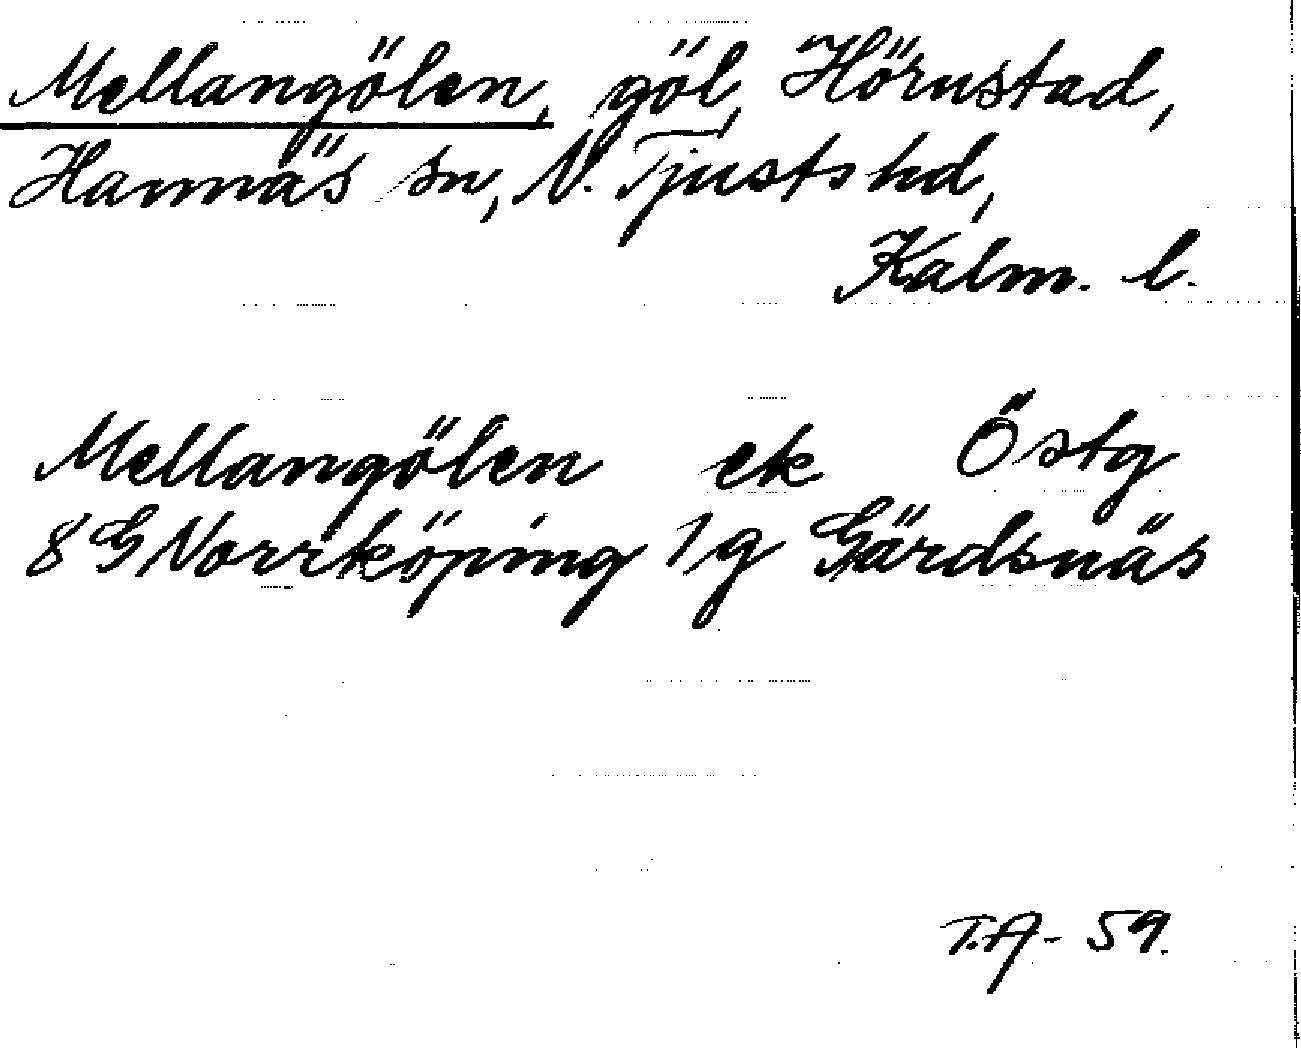 Mellangölen, göl, Hörnstad,
Hannäs sn, N. Tjusts hd,
Kalm. l.
Mellangölen ek Östg
8 G Norrköping 1 g Gärdsnäs
T.A-59.